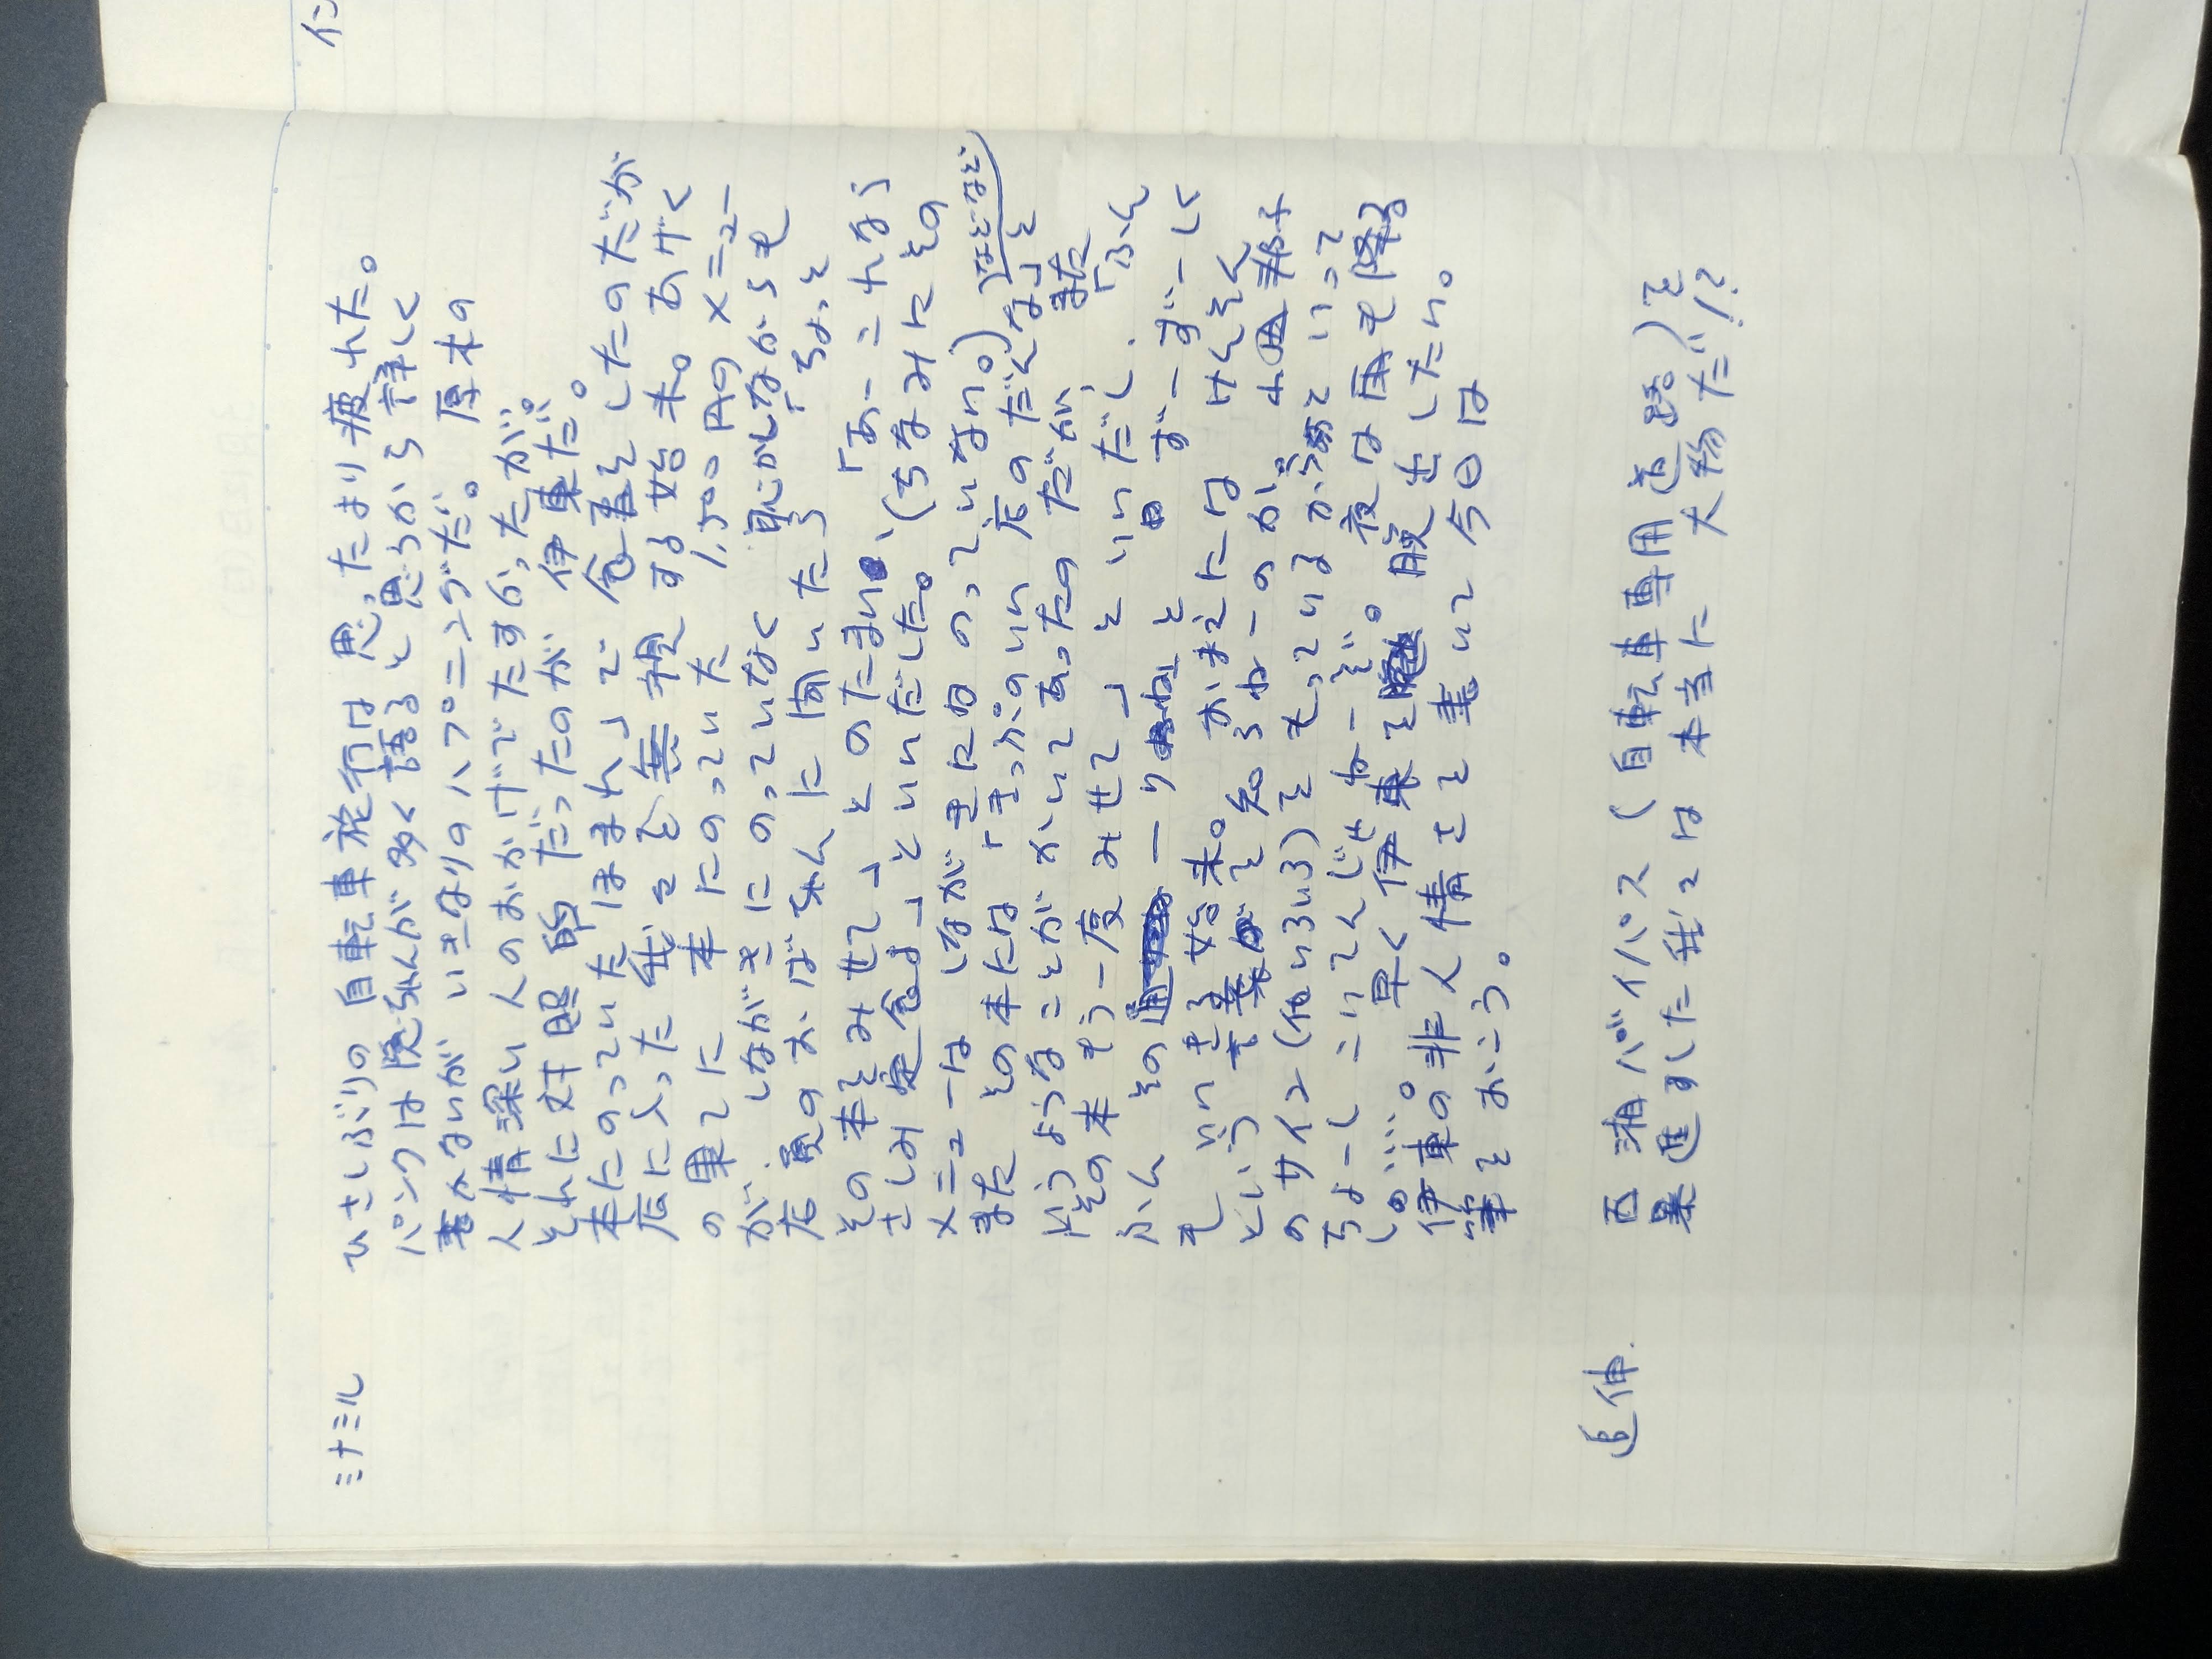 ミナミル
ひさしぶりの自転車旅行は思ったより疲れた。
パンクは院ちゃんが多く語ると思うから詳しく
書かないが いきなりのハプニングだ。 厚木の
人情深い人のおかげでたすかったが。
それに対照的だったのが 伊東だ。
本にのっていた「ほまれ」で食事をしたのだが
店に入った我々を無視する始末。あげく
の果てに 本にのっていた 1,500円のメニュー
が しながきにのっていなく 恥ずかしながらも
店員のおばさんに聞いたら 「ちょっと
その本をみせて」とのたまい、「あーこれなら
さしみ定食よ」といいだした。(ちなみにその
メニューは しながきにはのっていない。)
また その本には「きっぷのいい店のだんな」と
ゆうようなことがかいてあったのだが、また
「その本もう一度みせて」といいだし、「ふん
ふん その ーりね」と ずーずーしく
も いいきる始末。おまえには けんそん
という言葉を知らねーのか。 山田邦子
のサイン(他いろいろ)をもっているからって
ちょーしこいてんじゃねーぞ。夜は雨も降る
し……。早く伊東を脱出したい。
伊東の非人情さを書いて今日は
筆をおこう。
追伸. 西湘バイパス(自転車専用道路)を
暴走した我々は 本当に 大物だ!?
イン